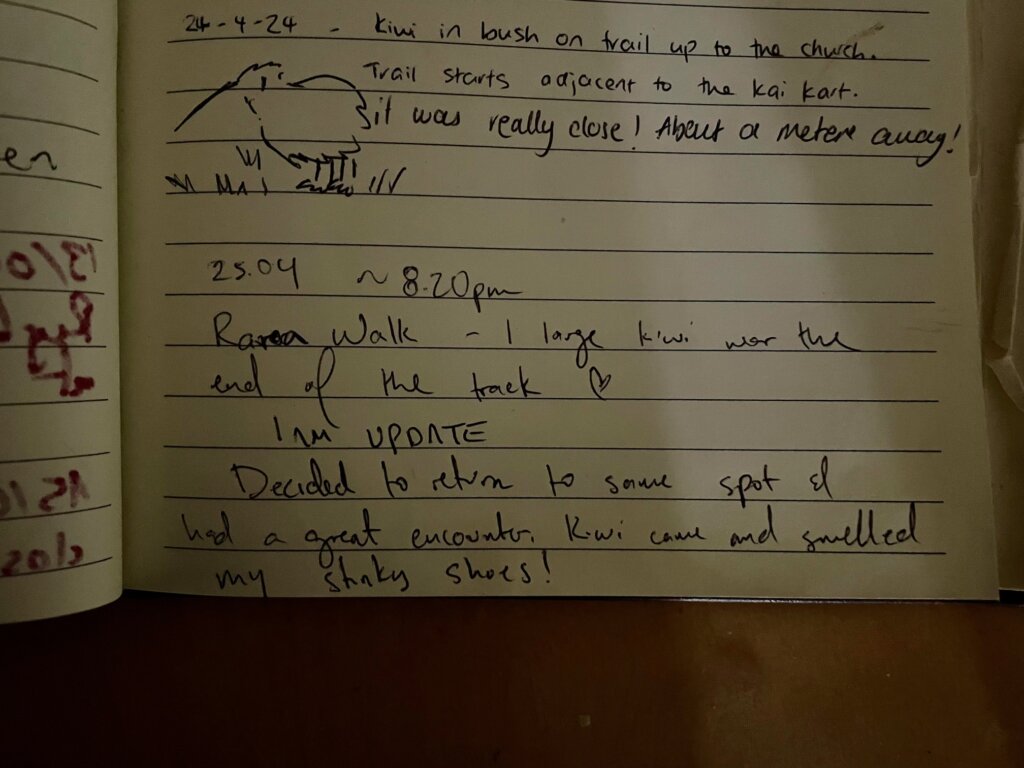 en
24-4-24 - Kiwi in bush on trail up to the church.
Trail starts adjacent to the kai kart.
it was really close! About a metere away!
25.04 ~ 8.20pm
Walk - 1 large kiwi near the
end of the track ♡
1AM UPDATE
Decided to return to same spot &
had a great encounter. Kiwi came and smelled
my stinky shoes!